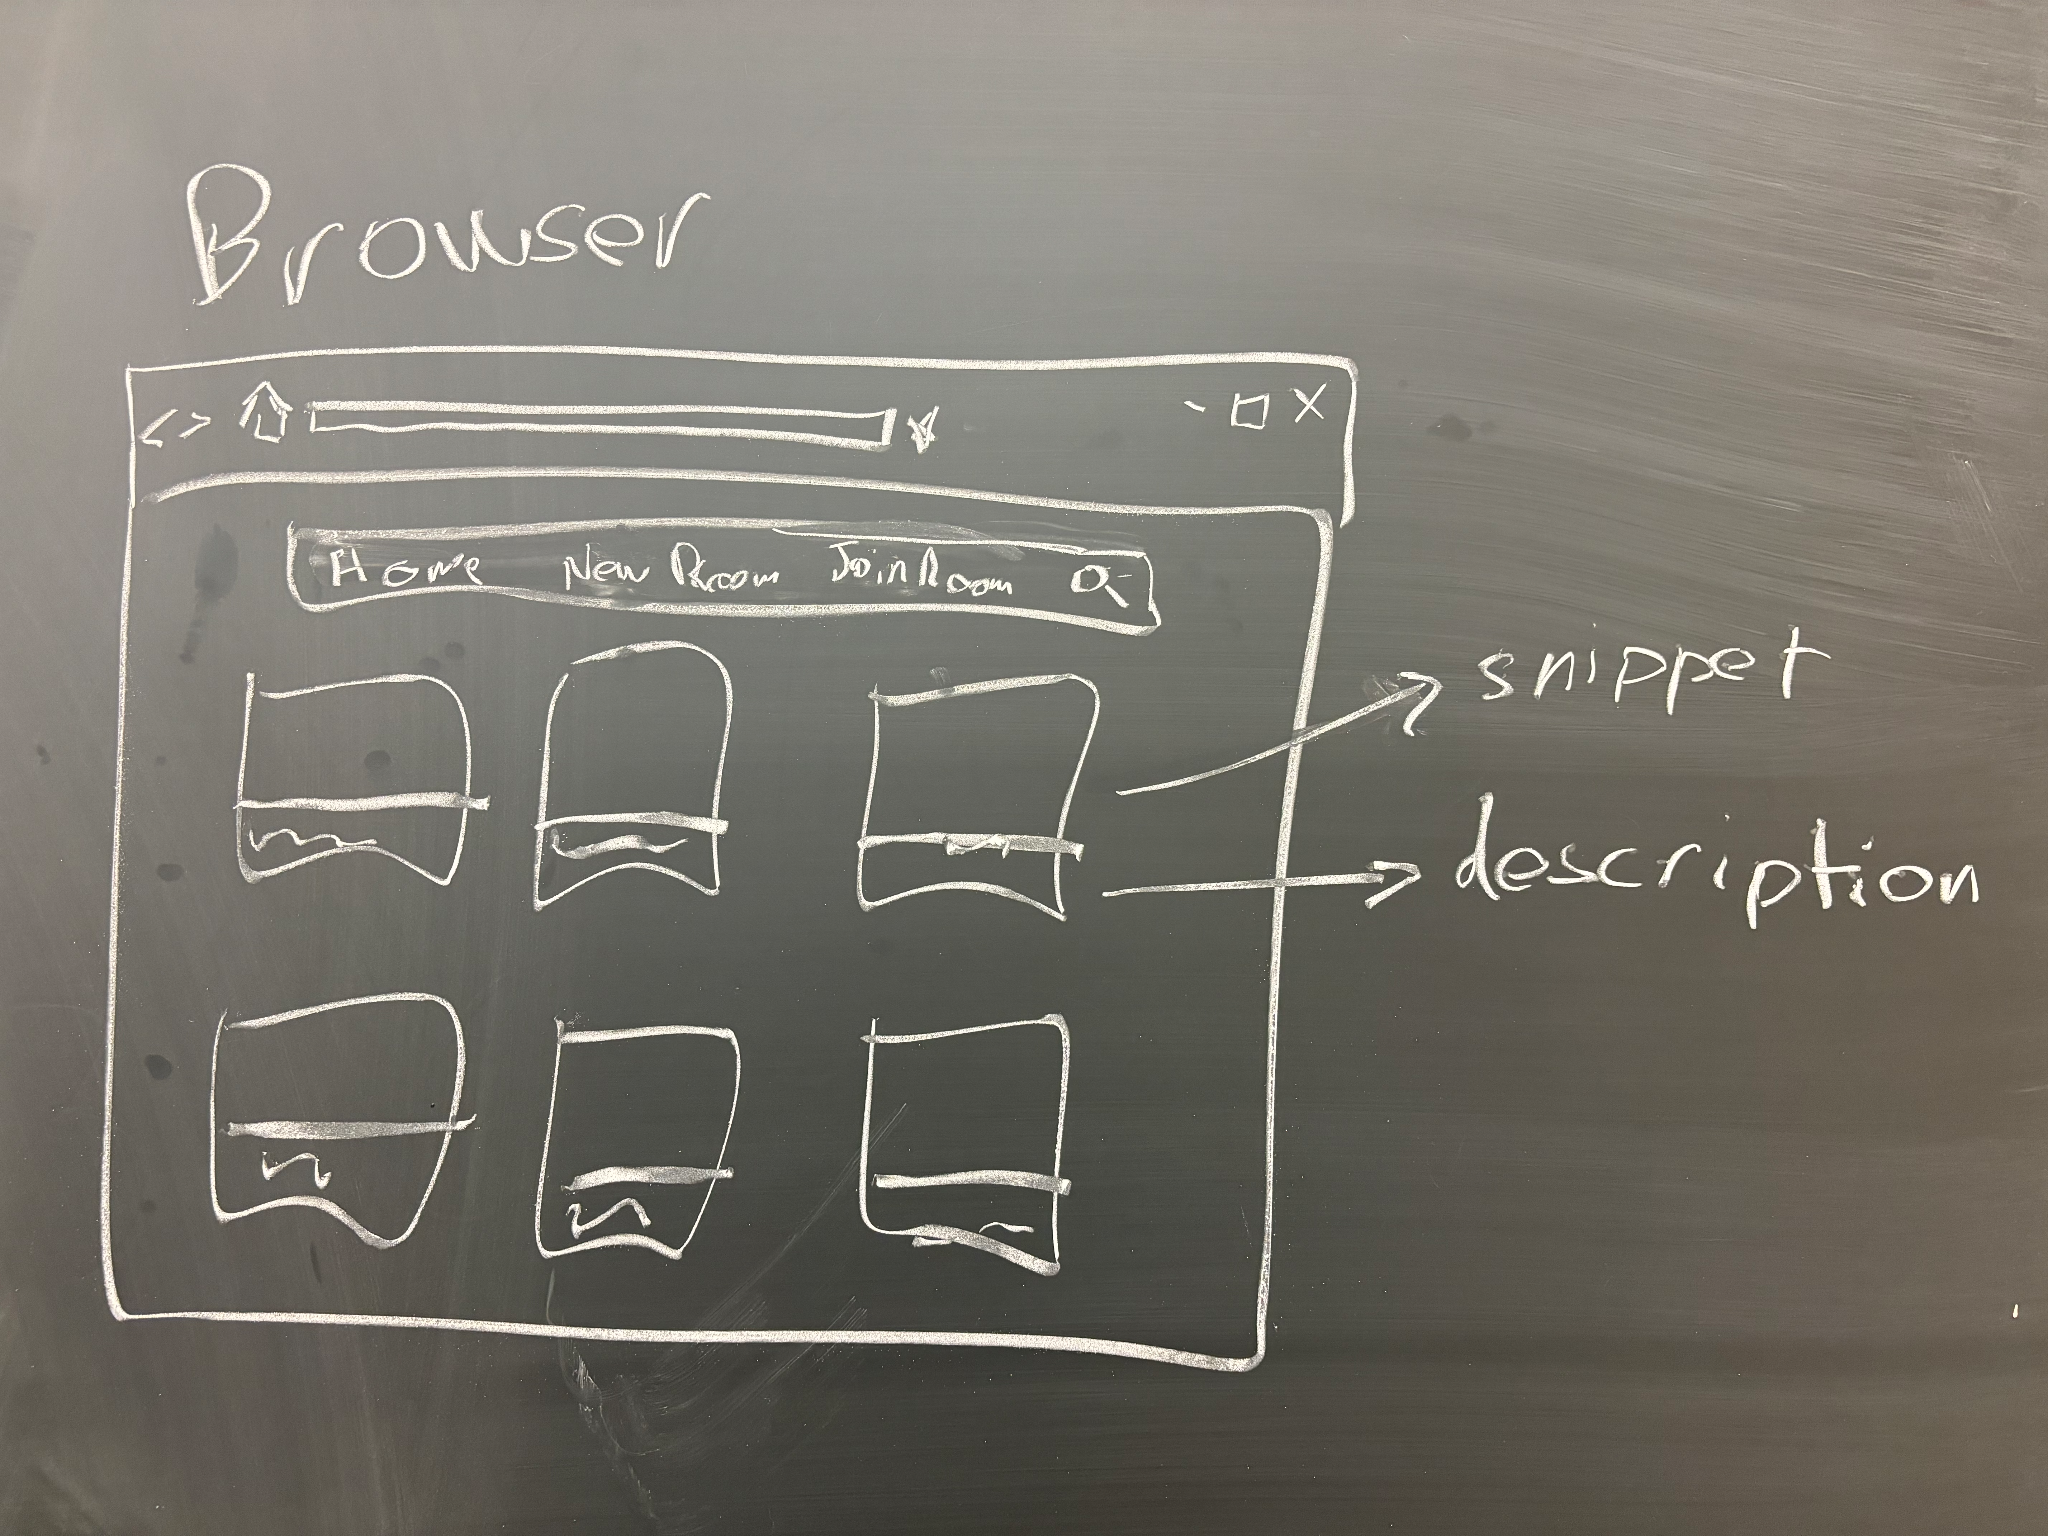 Browser
< > - □ X
Home New Room Join Room
snippet
description